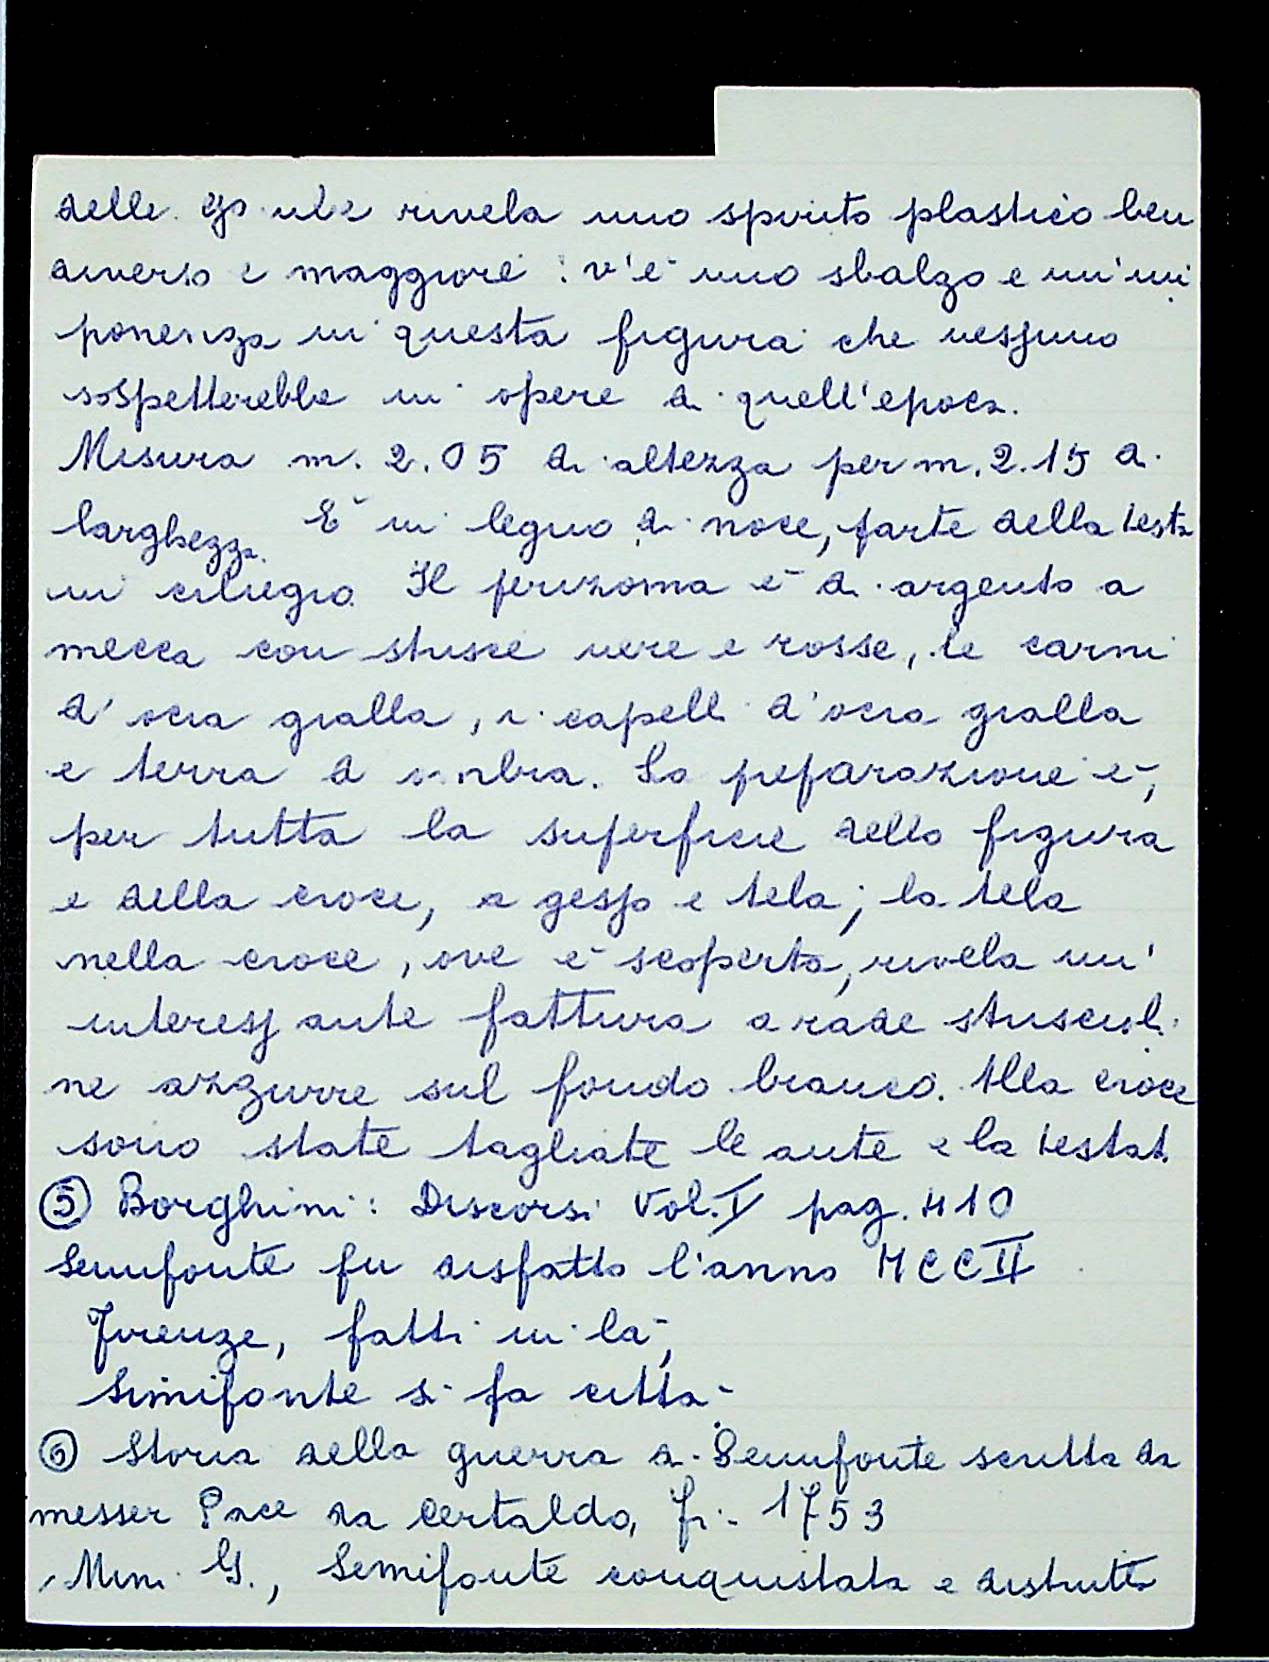 delle rivela uno spirito plastico ben
diverso e maggiore: v'è uno sbalzo e un'im
ponenza in questa figura che nessuno
sospetterebbe in opere di quell'epoca.
Misura m. 2.05 di altezza per m. 2.15 di
larghezza. È in legno di noce, parte della testa
in ciliegio. Il perizoma è di argento a
mecca con strisce nere e rosse, le carni
d'ocra gialla, i capelli d'ocra gialla
e terra d'ombra. La peparazione è,
per tutta la superficie della figura
e della croce, a gesso e tela; la tela
nella croce, ove è scoperta, rivela un'
interessante fattura a rade strisciol.
ne azzurre sul fondo bianco. Alla croce
sono state tagliate le ante e la testat.
⑤ Borghini: Discorsi Vol. I pag. 410
Semifonte fu disfatto l'anno MCCII
Firenze, fatti in là,
Simifonte si fa città.
⑥ Storia della guerra di Semifonte scritta da
messer Pace da Certaldo, Fi. 1753
Mini G., Semifonte conquistata e distrutta